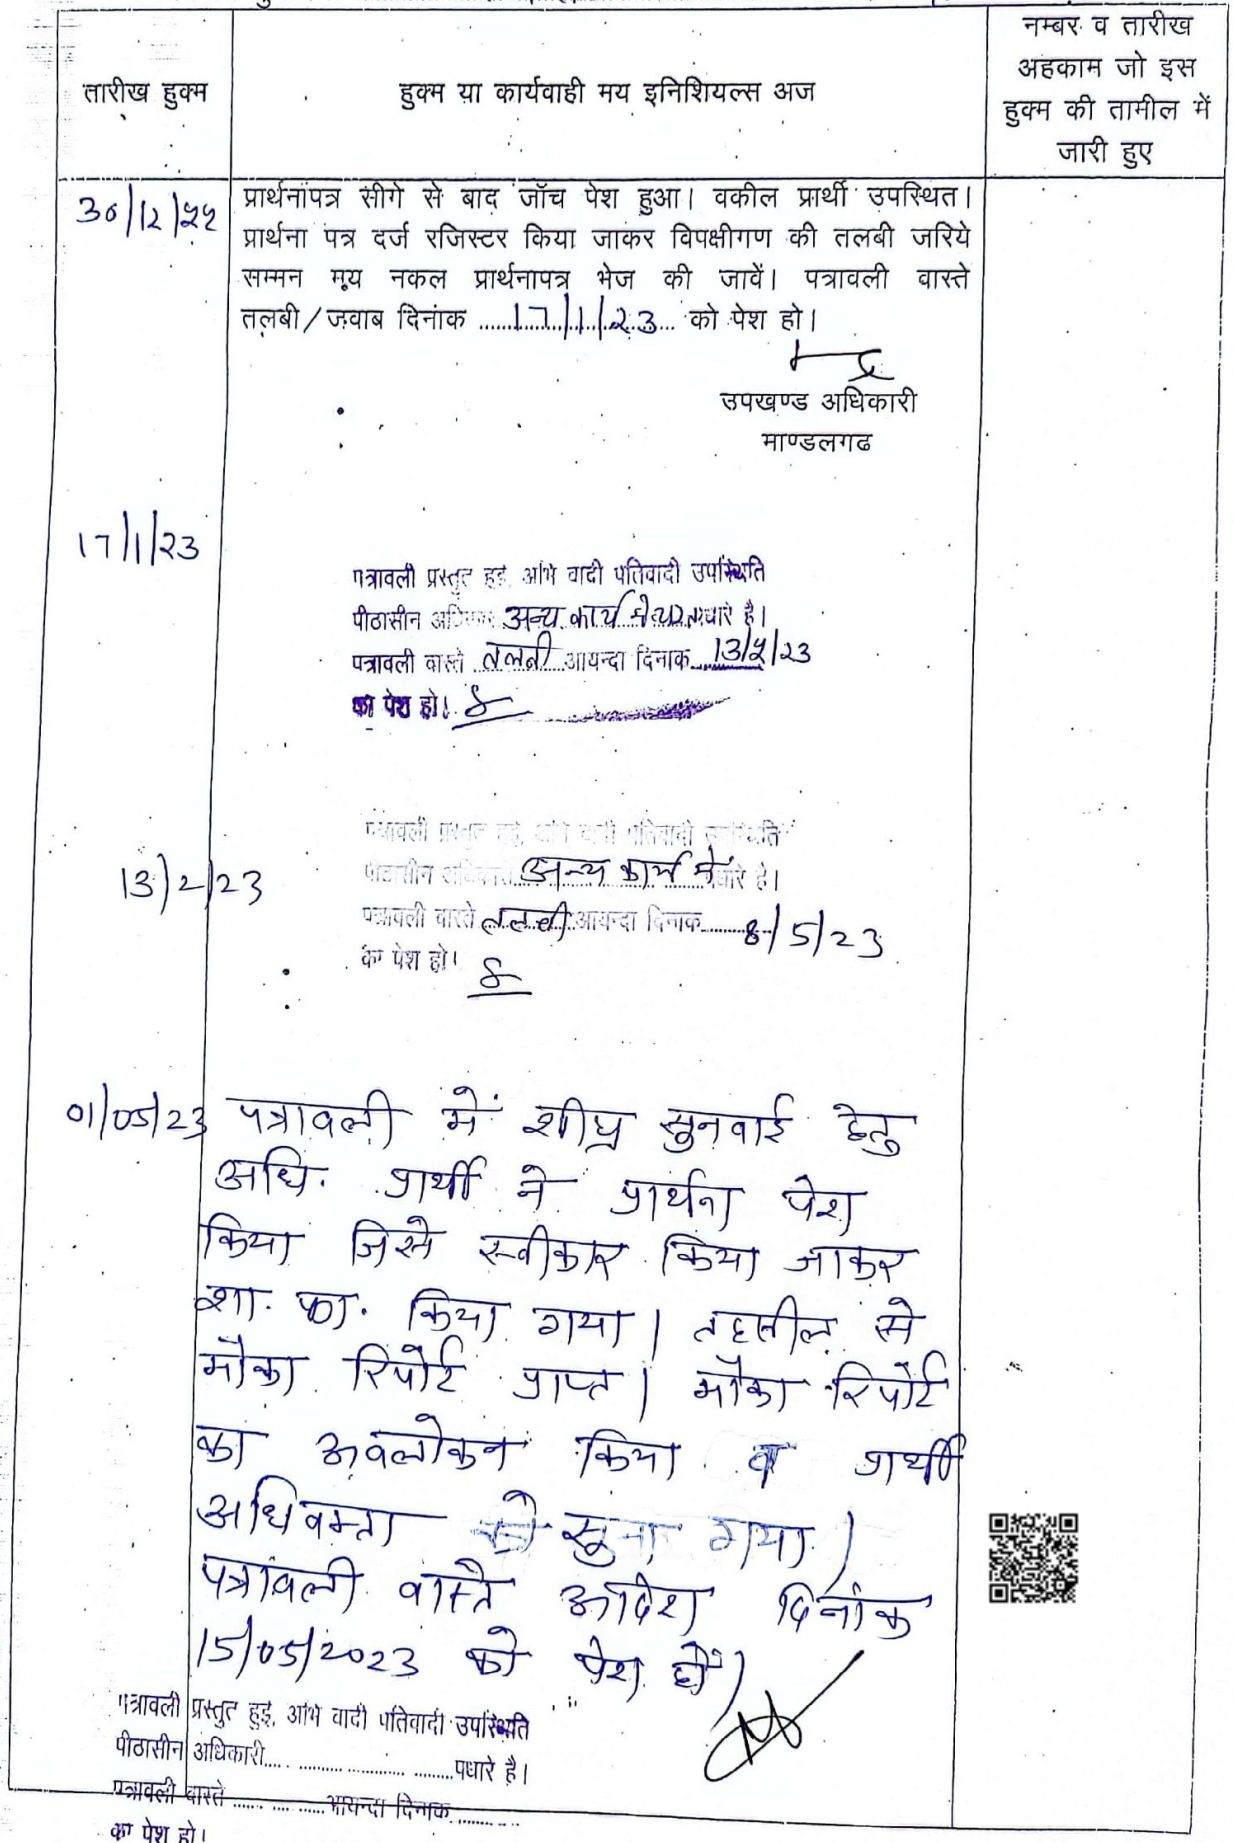 तारीख हुक्म
हुक्म या कार्यवाही मय इनिशियल्स अज
नम्बर व तारीख
अहकाम जो इस
हुक्म की तामील में
जारी हुए
30/12/22
प्रार्थनापत्र सीगे से बाद जॉच पेश हुआ। वकील प्रार्थी उपस्थित।
प्रार्थना पत्र दर्ज रजिस्टर किया जाकर विपक्षीगण की तलबी जरिये
सम्मन मय नकल प्रार्थनापत्र भेज की जावें। पत्रावली वास्ते
तलबी/जवाब दिनांक 17/1/23 को पेश हो।
उपखण्ड अधिकारी
माण्डलगढ
17/1/23
पत्रावली प्रस्तुत हुई, अभि वादी पतिवादी उपस्थिति
पीठासीन अन्य कार्य पधारे है।
पत्रावली वास्ते तलबी आयन्दा दिनाक 13/2/23
का पेश हो।
13/2/23
पत्रावली प्रस्तुत हुई, अभि वादी पतिवादी उपस्थिति
पीठासीन अधिकारी अन्य कार्य में पधारे है।
पत्रावली वास्ते तलबी आयन्दा दिनाक 8/5/23
का पेश हो।
01/05/23 पत्रावली में शीघ्र सुनवाई हेतु
अधि. प्रार्थी ने प्रार्थना पेश
किया जिसे स्वीकार किया जाकर
शा. फा. किया गया। तहसील से
मौका रिपोर्ट प्राप्त। मौका रिपोर्ट
का अवलोकन किया व प्रार्थी
अधिवक्ता को सुना गया।
पत्रावली वास्ते आदेश दिनांक
15/05/2023 को पेश हो।
पत्रावली प्रस्तुत हुई, अभि वादी पतिवादी उपस्थिति
पीठासीन अधिकारी.................पधारे है।
पत्रावली वास्ते .............आयन्दा दिनाक...........
का पेश हो।